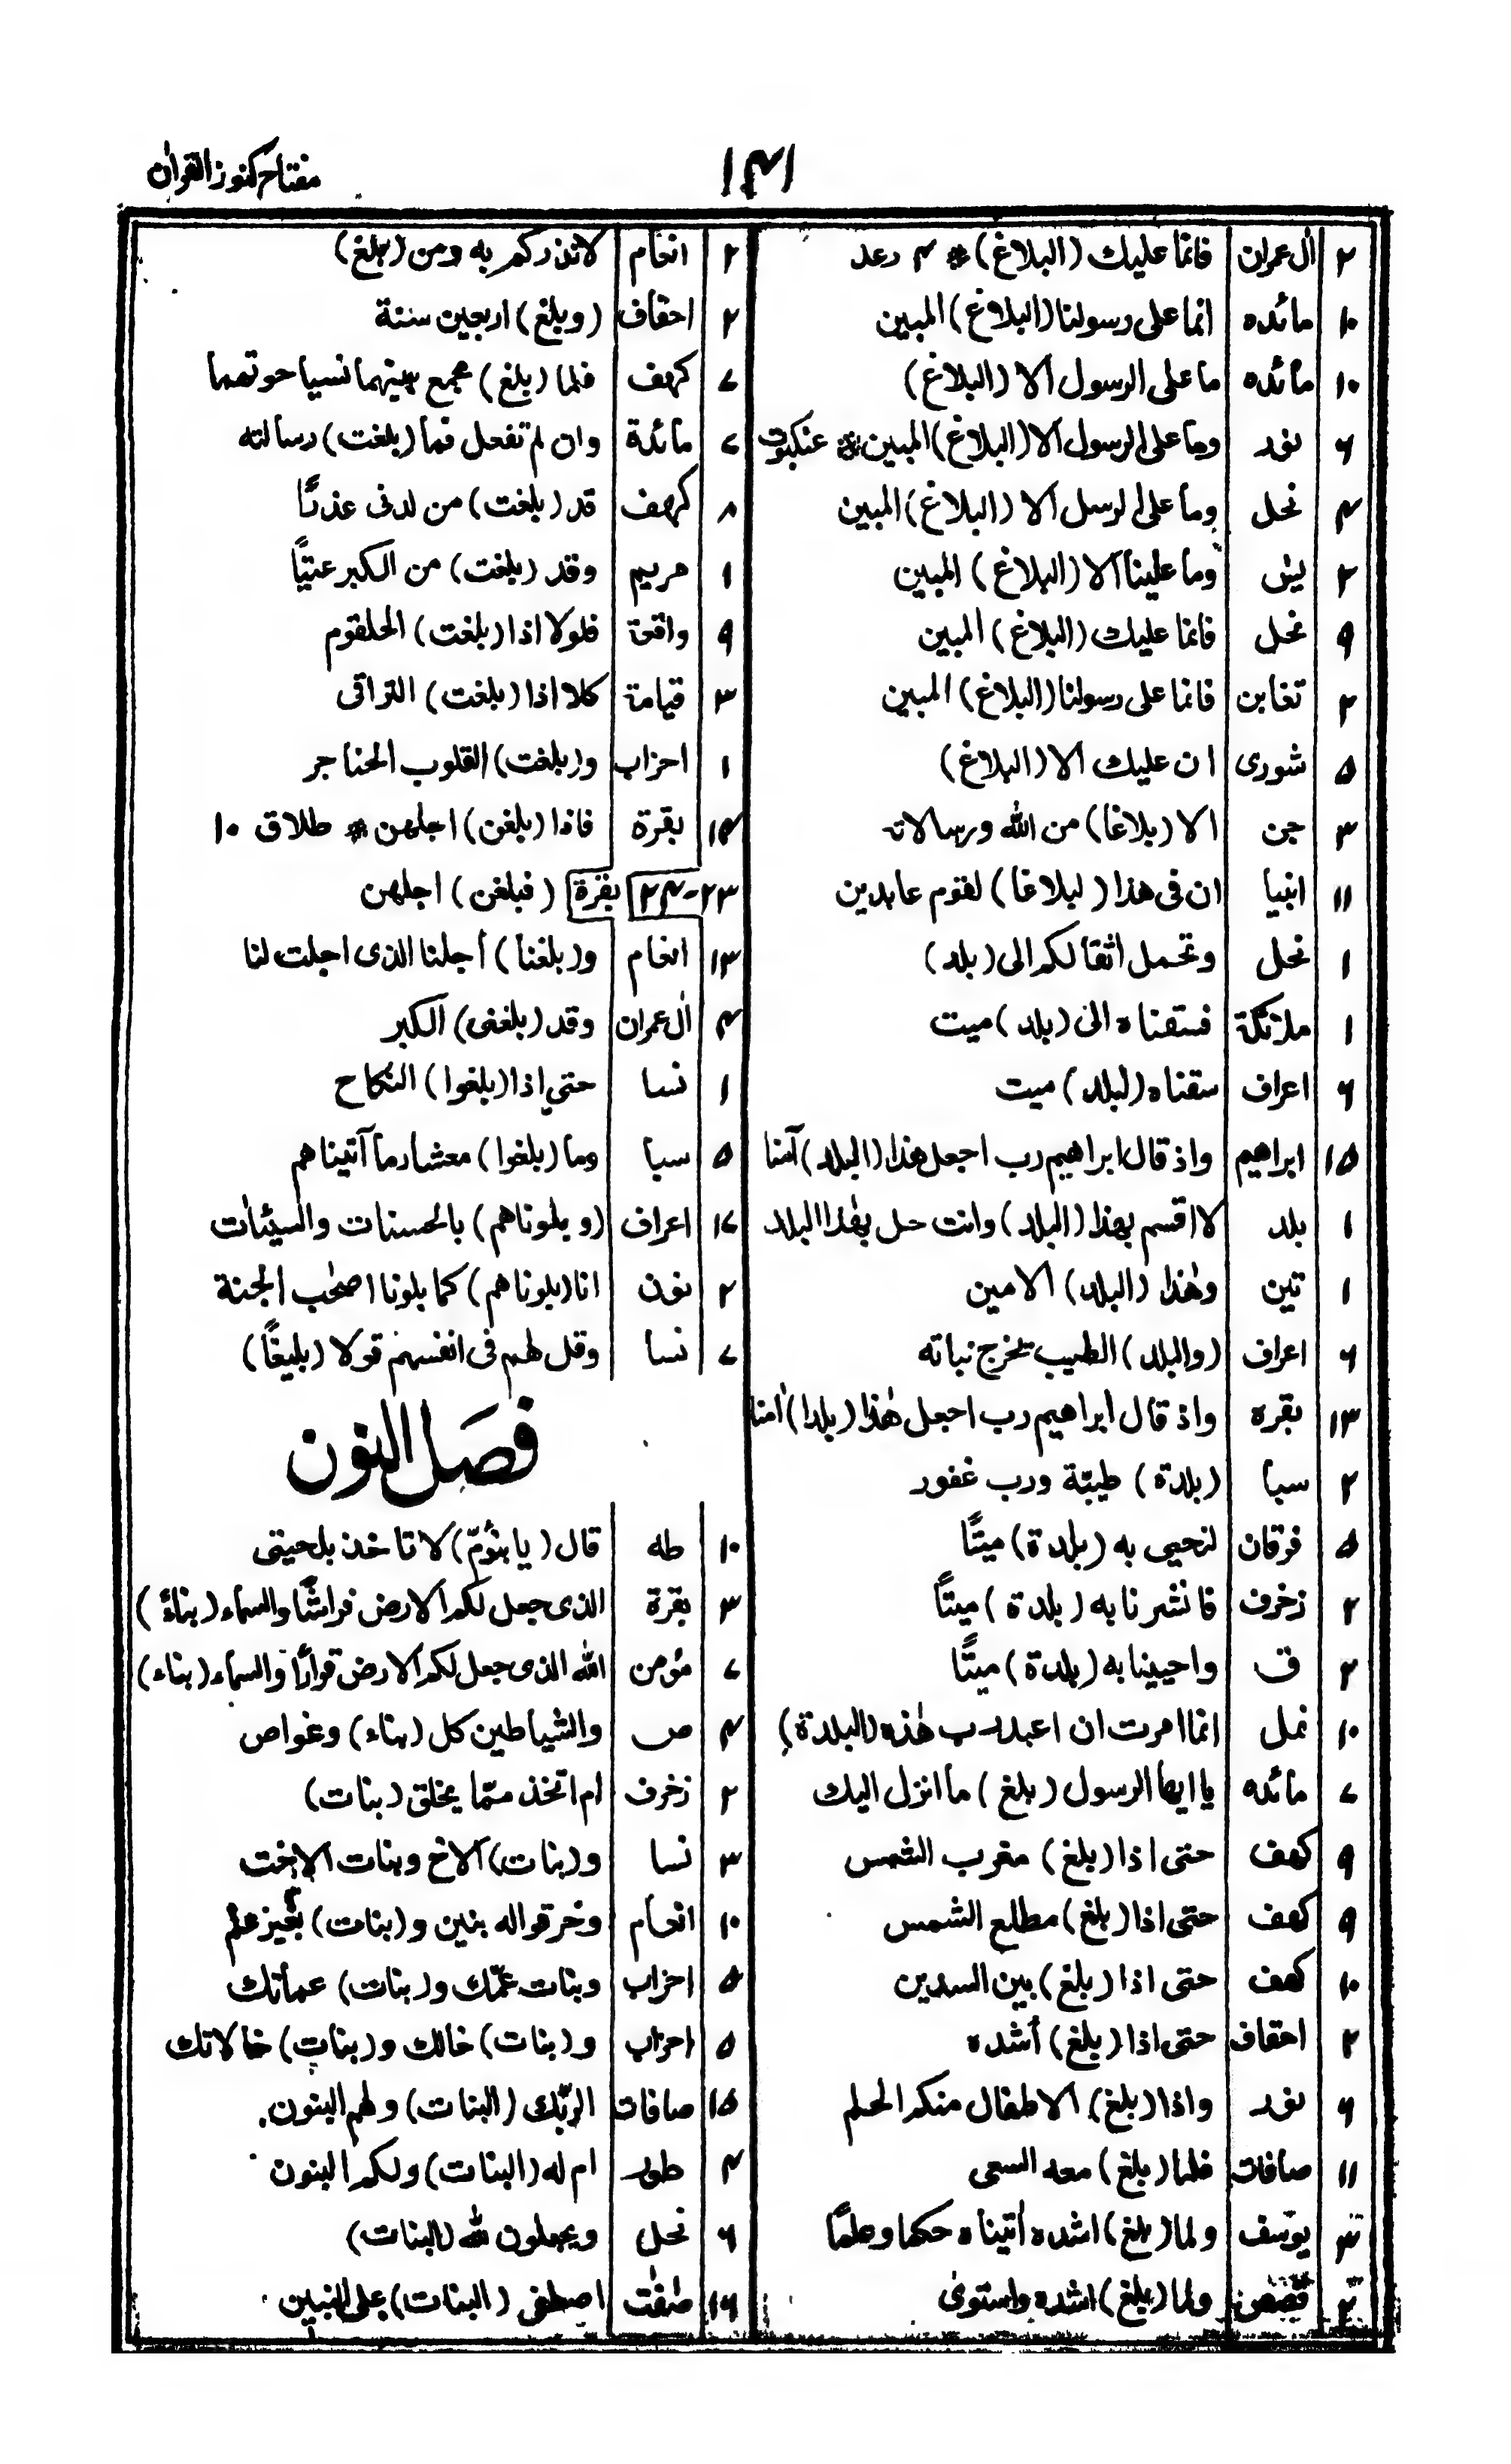 مفتاح كنوز القرآن
١٤١
٢ اٰل عمران فانما عليك (البلاغ) * ۴ رعد
١٠ مائده انما على رسولنا (البلاغ) المبين
١٠ مائده ما على الرسول الا (البلاغ)
۶ نور وما على الرسول الا (البلاغ) المبين * عنكبوت
۴ نحل وما على الرسل الا (البلاغ) المبين
٢ يٰس وما علينا الا (البلاغ) المبين
٩ نحل فانما عليك (البلاغ) المبين
٢ تغابن فانما على رسولنا (البلاغ) المبين
۵ شورى ان عليك الا (البلاغ)
٣ جن الا (بلاغا) من الله ورسالاته
١١ انبيا ان فى هذا (لبلاغا) لقوم عابدين
١ نحل وتحمل اثقالكم الى (بلد)
١ ملائكة فسقناه الى (بلد) ميت
۶ اعراف سقناه (لبلد) ميت
١۵ ابراهيم واذ قال ابراهيم رب اجعل هذا (البلد) آمنا
١ بلد لا اقسم بهذا (البلد) وانت حل بهٰذا البلد
١ تين وهٰذا (البلد) الامين
۶ اعراف (والبلد) الطيب يخرج نباته
١٣ بقره واذ قال ابراهيم رب اجعل هٰذا (بلدا) اٰمنا
٢ سبا (بلدة) طيبّة ورب غفور
۵ فرقان لنحيى به (بلدة) ميتًا
٢ زخرف فانشرنا به (بلدة) ميتًا
٢ ق واحيينا به (بلدة) ميتًا
١٠ نمل انما امرت ان اعبد رب هٰذه (البلدة)
٧ مائده يا ايها الرسول (بلغ) ما انزل اليك
٩ كهف حتى اذا (بلغ) مغرب الشمس
٩ كهف حتى اذا (بلغ) مطلع الشمس
١٠ كهف حتى اذا (بلغ) بين السدين
٢ احقاف حتى اذا (بلغ) أشده
۶ نور واذا (بلغ) الاطفال منكم الحلم
١١ صافات فلما (بلغ) معه السعى
يوسف ولما (بلغ) اشده اٰتيناه حكما وعلمًا
٢ قصص ولما (بلغ) اشده واستوىٰ
٢ انعام لانذركم به ومن (بلغ)
٢ احقاف (وبلغ) اربعين سنة
٧ كهف فلما (بلغ) مجمع بينهما نسيا حوتهما
٧ مائدة وان لم تفعل فما (بلغت) رسالته
٨ كهف قد (بلغت) من لدنى عذرًا
١ مريم وقد (بلغت) من الكبر عتيًا
٩ واقعة فلولا اذا (بلغت) الحلقوم
٣ قيامة كلا اذا (بلغت) التراقى
١ احزاب و(بلغت) القلوب الحناجر
١۴ بقرة فاذا (بلغن) اجلهن * طلاق ١٠
٢٣-٢۴ بقرة (فبلغن) اجلهن
١٣ انعام و(بلغنا) أجلنا الذى اجلت لنا
۴ اٰل عمران وقد (بلغنى) الكبر
١ نسا حتى اذا (بلغوا) النكاح
۵ سبا وما (بلغوا) معشار ما آتيناهم
١٧ اعراف (وبلوناهم) بالحسنات والسيئات
٢ نون انا (بلوناهم) كما بلونا اصحٰب الجنة
٧ نسا وقل لهم فى انفسهم قولا (بليغًا)
فصل النون
١٠ طه قال (يا بنؤمّ) لا تاخذ بلحيتى
٣ بقرة الذى جعل لكم الارض فراشًا والسماء (بناءً)
٧ مؤمن الله الذى جعل لكم الارض قرارًا والسماء (بناء)
۴ ص والشياطين كل (بناء) وغواص
٢ زخرف ام اتخذ ممّا يخلق (بنات)
٣ نسا و(بنات) الاخ وبنات الاخت
١٠ انعام وخرقوا له بنين و(بنات) بغير علم
۵ احزاب وبنات عمّك و(بنات) عماتك
۵ احزاب و(بنات) خالك و(بنات) خالاتك
١۵ صافات الربّك (البنات) ولهم البنون
۴ طور ام له (البنات) ولكم البنون
۶ نحل ويجعلون لله (البنات)
١۶ صٰفٰت اصطفى (البنات) على البنين